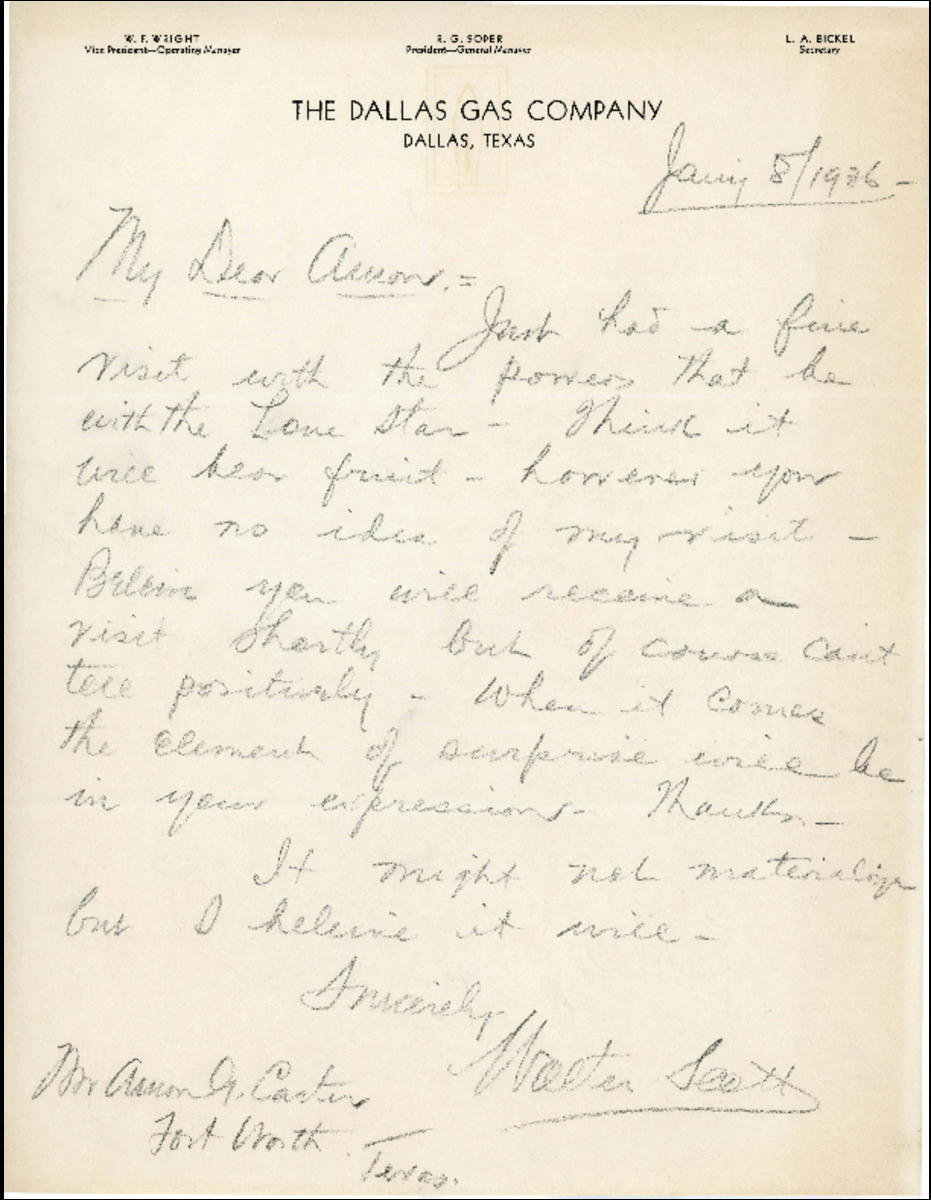 W. F. WRIGHT
Vice President—Operating Manager
R. G. SOPER
President—General Manager
L. A. BICKEL
Secretary
THE DALLAS GAS COMPANY
DALLAS, TEXAS
Jany 8/1936 -
My Dear Amon,=
Just had a fine
visit with the powers that be
with the Lone Star - Think it
will bear fruit - however you
have no idea of my visit -
Believe you will receive a
visit shortly but of course can't
tell positively - When it comes
the element of surprise will be
in your expression - Thanks -
It might not materialize
but I believe it will -
Sincerely
Walter Scott
Mr Amon G. Carter
Fort Worth
Texas.